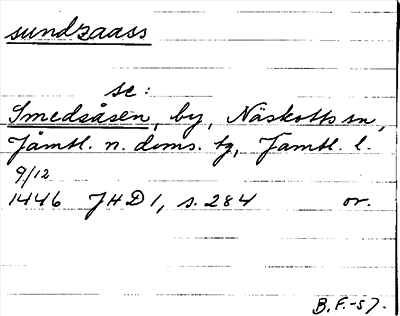 sundzaass
se:
Smedsåsen, by, Näskotts sn,
Jämtl. n. doms. tg, Jämtl. l.
9/12
1446 JHD 1, s. 284 or.
B.F.-57.